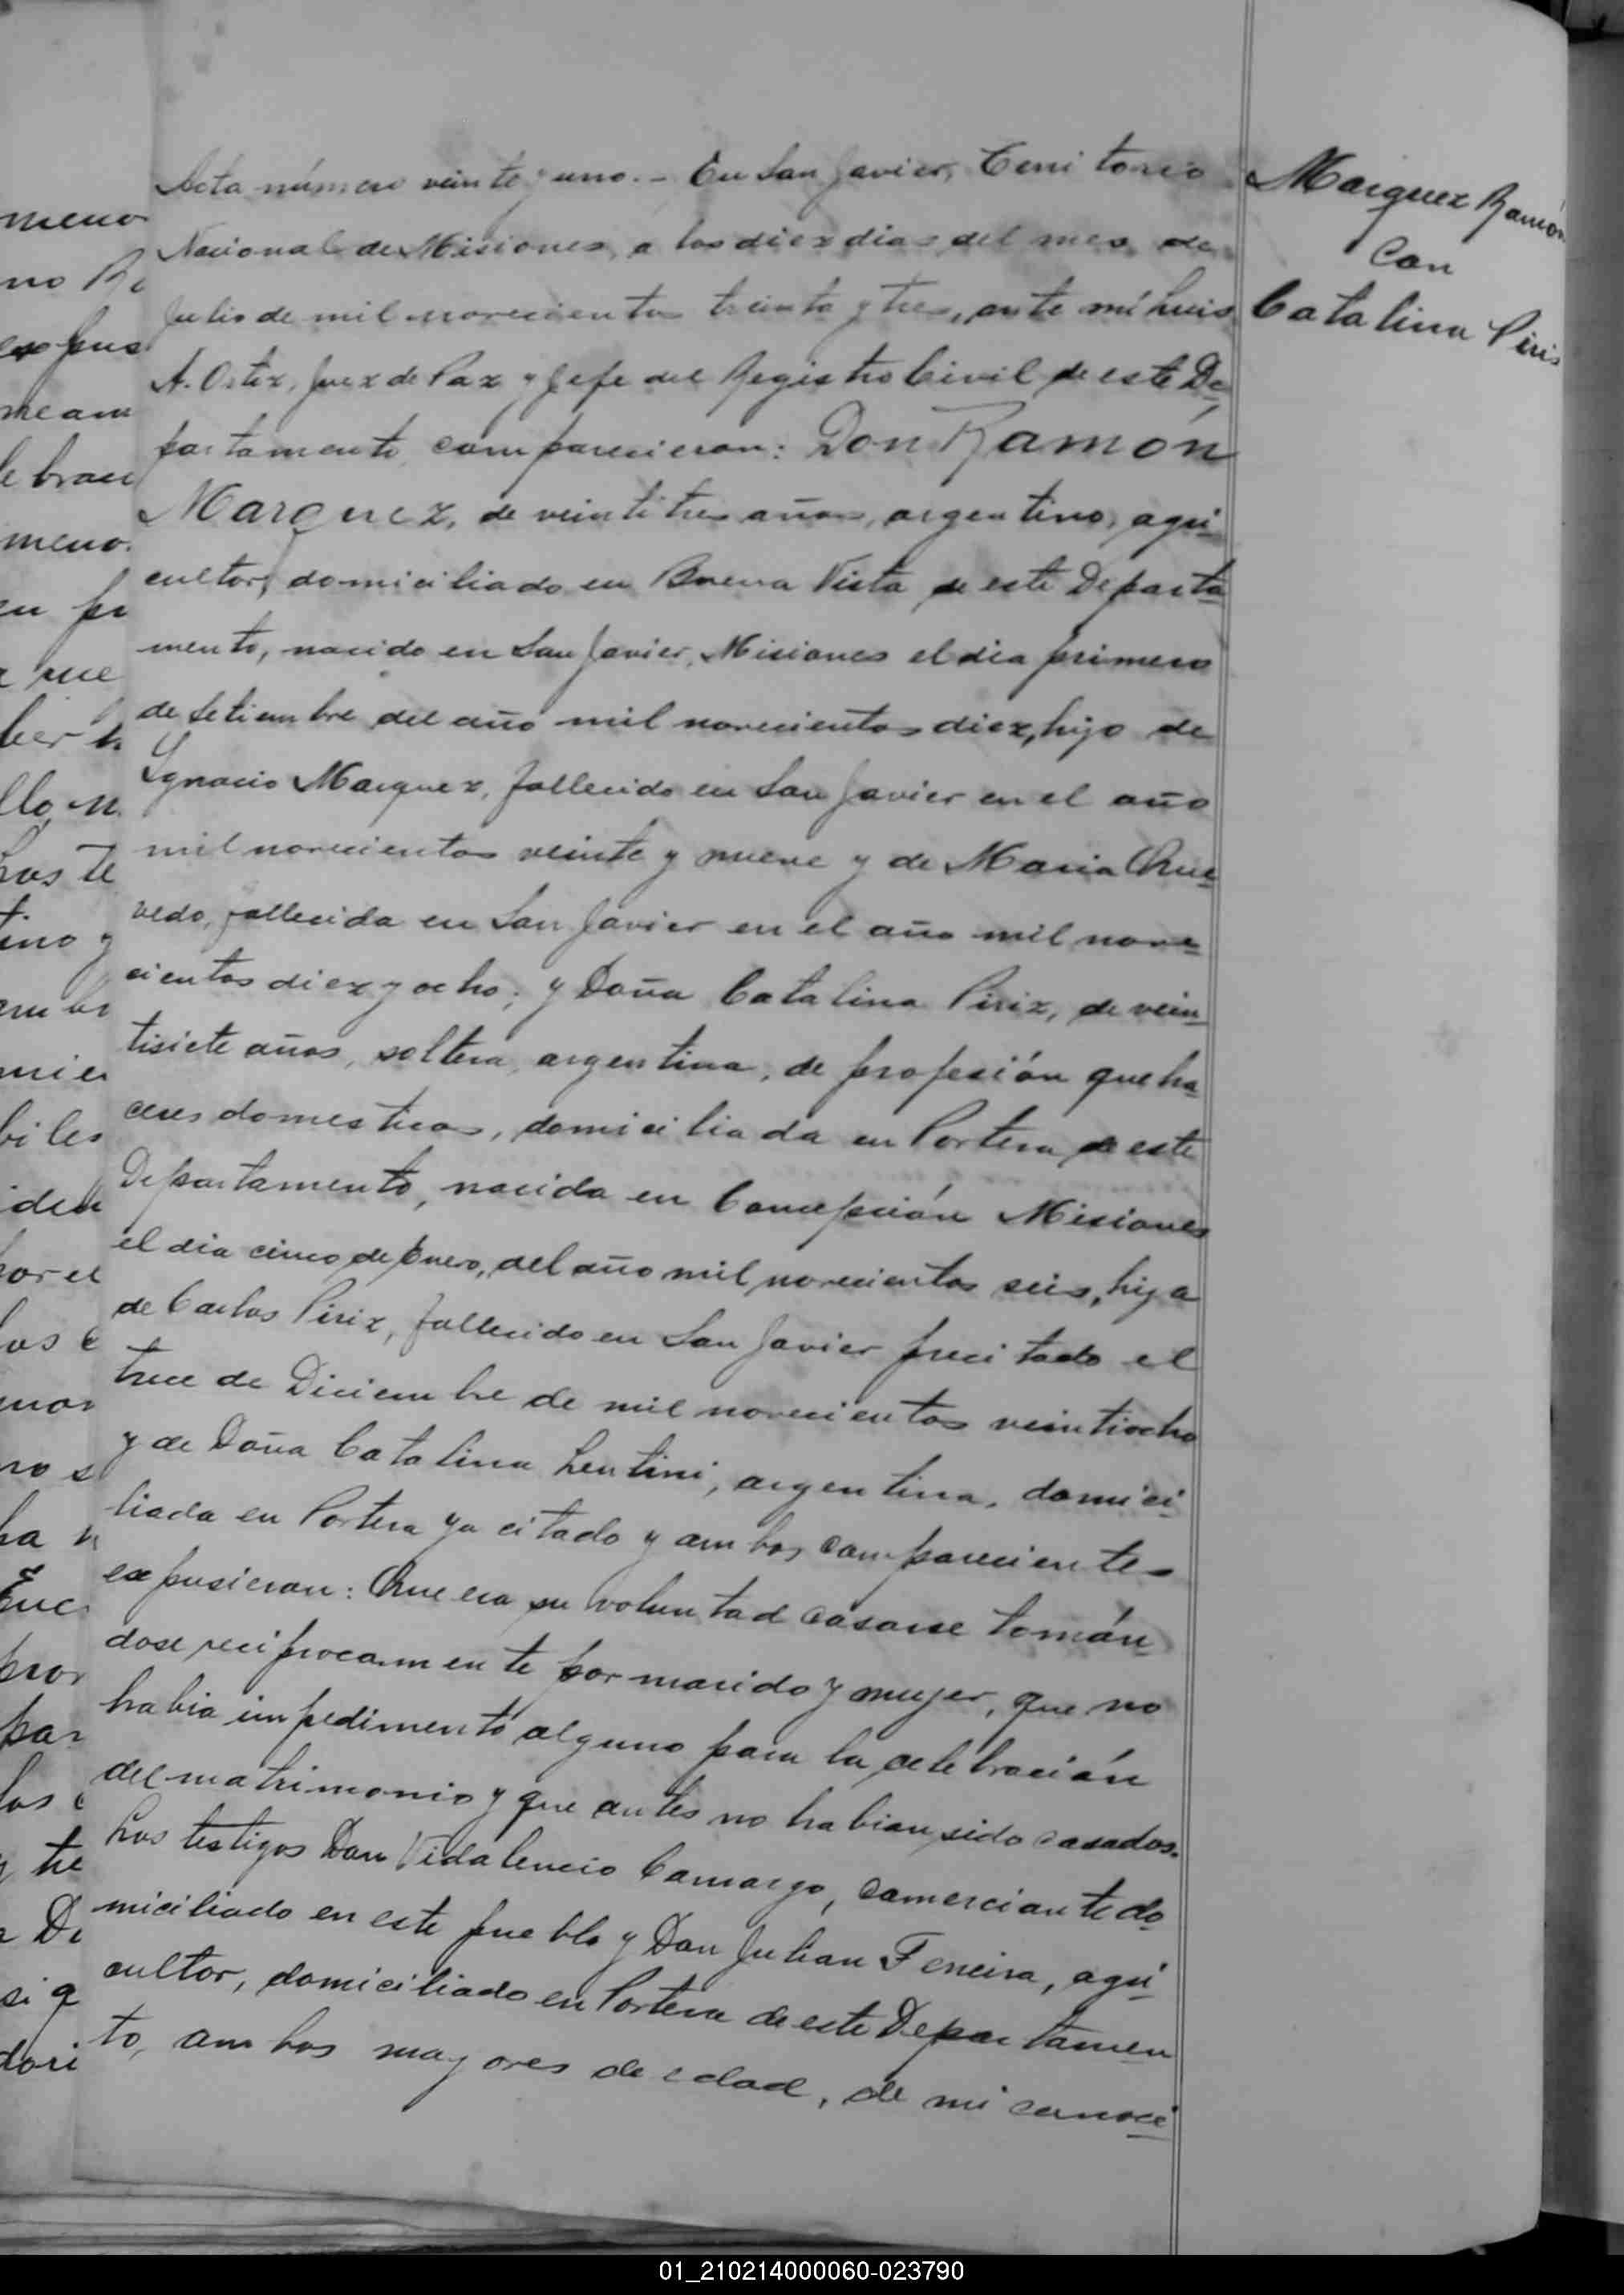 Acta número veinte y uno.- En San Javier, Territorio
Nacional de Misiones, a los diez dias del mes de
Julio de mil novecientos treinta y tres, ante mí Luis
A. Ortiz, Juez de Paz y Jefe del Registro Civil de este De-
partamento comparecieron: Don Ramón
Marquez, de veintitres años, argentino, agri-
cultor, domiciliado en Buena Vista de este Departa-
mento, nacido en San Javier, Misiones el dia primero
de Setiembre del año mil novecientos diez, hijo de
Ygnacio Marquez, fallecido en San Javier en el año
mil novecientos veinte y nueve y de Maria Que-
vedo, fallecida en San Javier en el año mil nove-
cientos diez y ocho; y Doña Catalina Piriz, de vein-
tisiete años, soltera, argentina, de profesión queha-
ceres domesticos, domiciliada en Portera de este
Departamento, nacida en Concepción Misiones
el dia cinco de Enero, del año mil novecientos seis, hija
de Carlos Piriz, fallecido en San Javier precitado el
trece de Diciembre de mil novecientos veintiocho
y de Doña Catalina Lentini, argentina, domici-
liada en Portera ya citado y ambos comparecientes
expusieron: Que era su voluntad casarse tomán-
dose reciprocamente por marido y mujer, que no
habia impedimento alguno para la celebración
del matrimonio y que antes no habian sido casados.
Los testigos Don Vidalencio Camargo, comerciante do-
miciliado en este pueblo y Don Julian Ferreira, agri-
cultor, domiciliado en Portera de este Departamen
to, ambos mayores de edad, de mi conoci-
Marquez Ramón
Con
Catalina Piris
meno
no
expus
me am
le bran
meno.
en pr
que
ber h
llo n
hos te
t.
ino y
ambr
mier
biles
iden
por el
los
mor
no s
ha
pror
par
los
tre
De
si q
dori
01_210214000060-023790